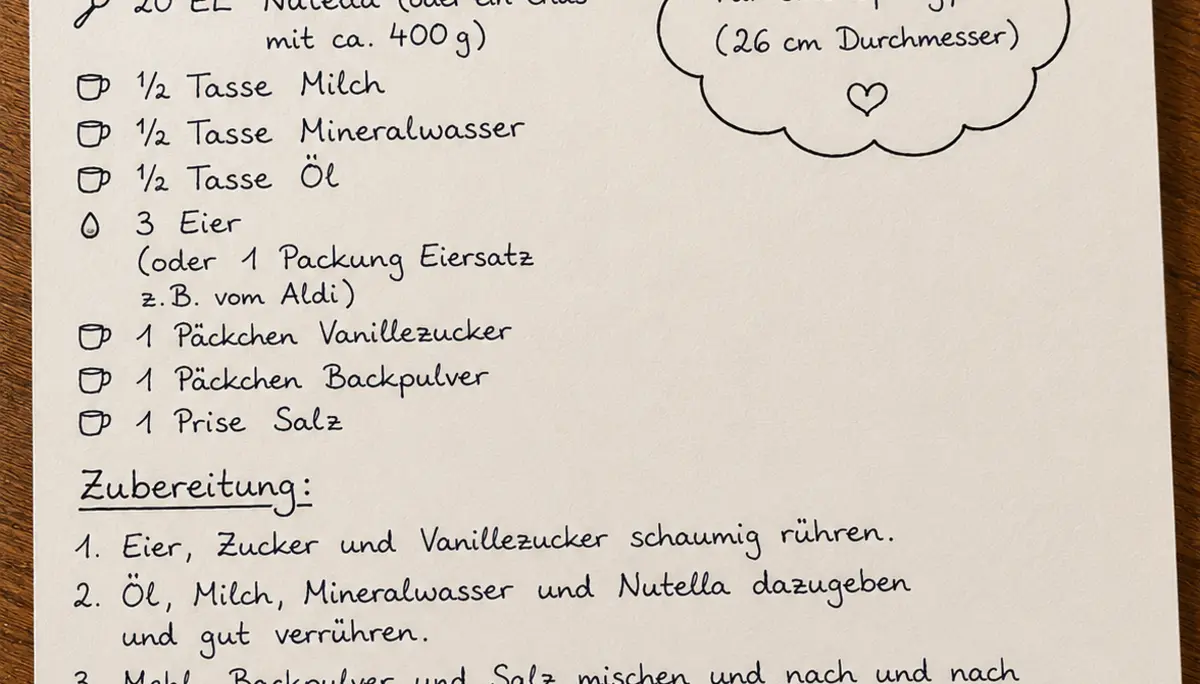 20 EL Nutella (oder ein Glas
mit ca. 400 g)
(26 cm Durchmesser)
1/2 Tasse Milch
1/2 Tasse Mineralwasser
1/2 Tasse Öl
3 Eier
(oder 1 Packung Eiersatz
z.B. vom Aldi)
1 Päckchen Vanillezucker
1 Päckchen Backpulver
1 Prise Salz
Zubereitung:
1. Eier, Zucker und Vanillezucker schaumig rühren.
2. Öl, Milch, Mineralwasser und Nutella dazugeben
und gut verrühren.
3. Mehl, Backpulver und Salz mischen und nach und nach